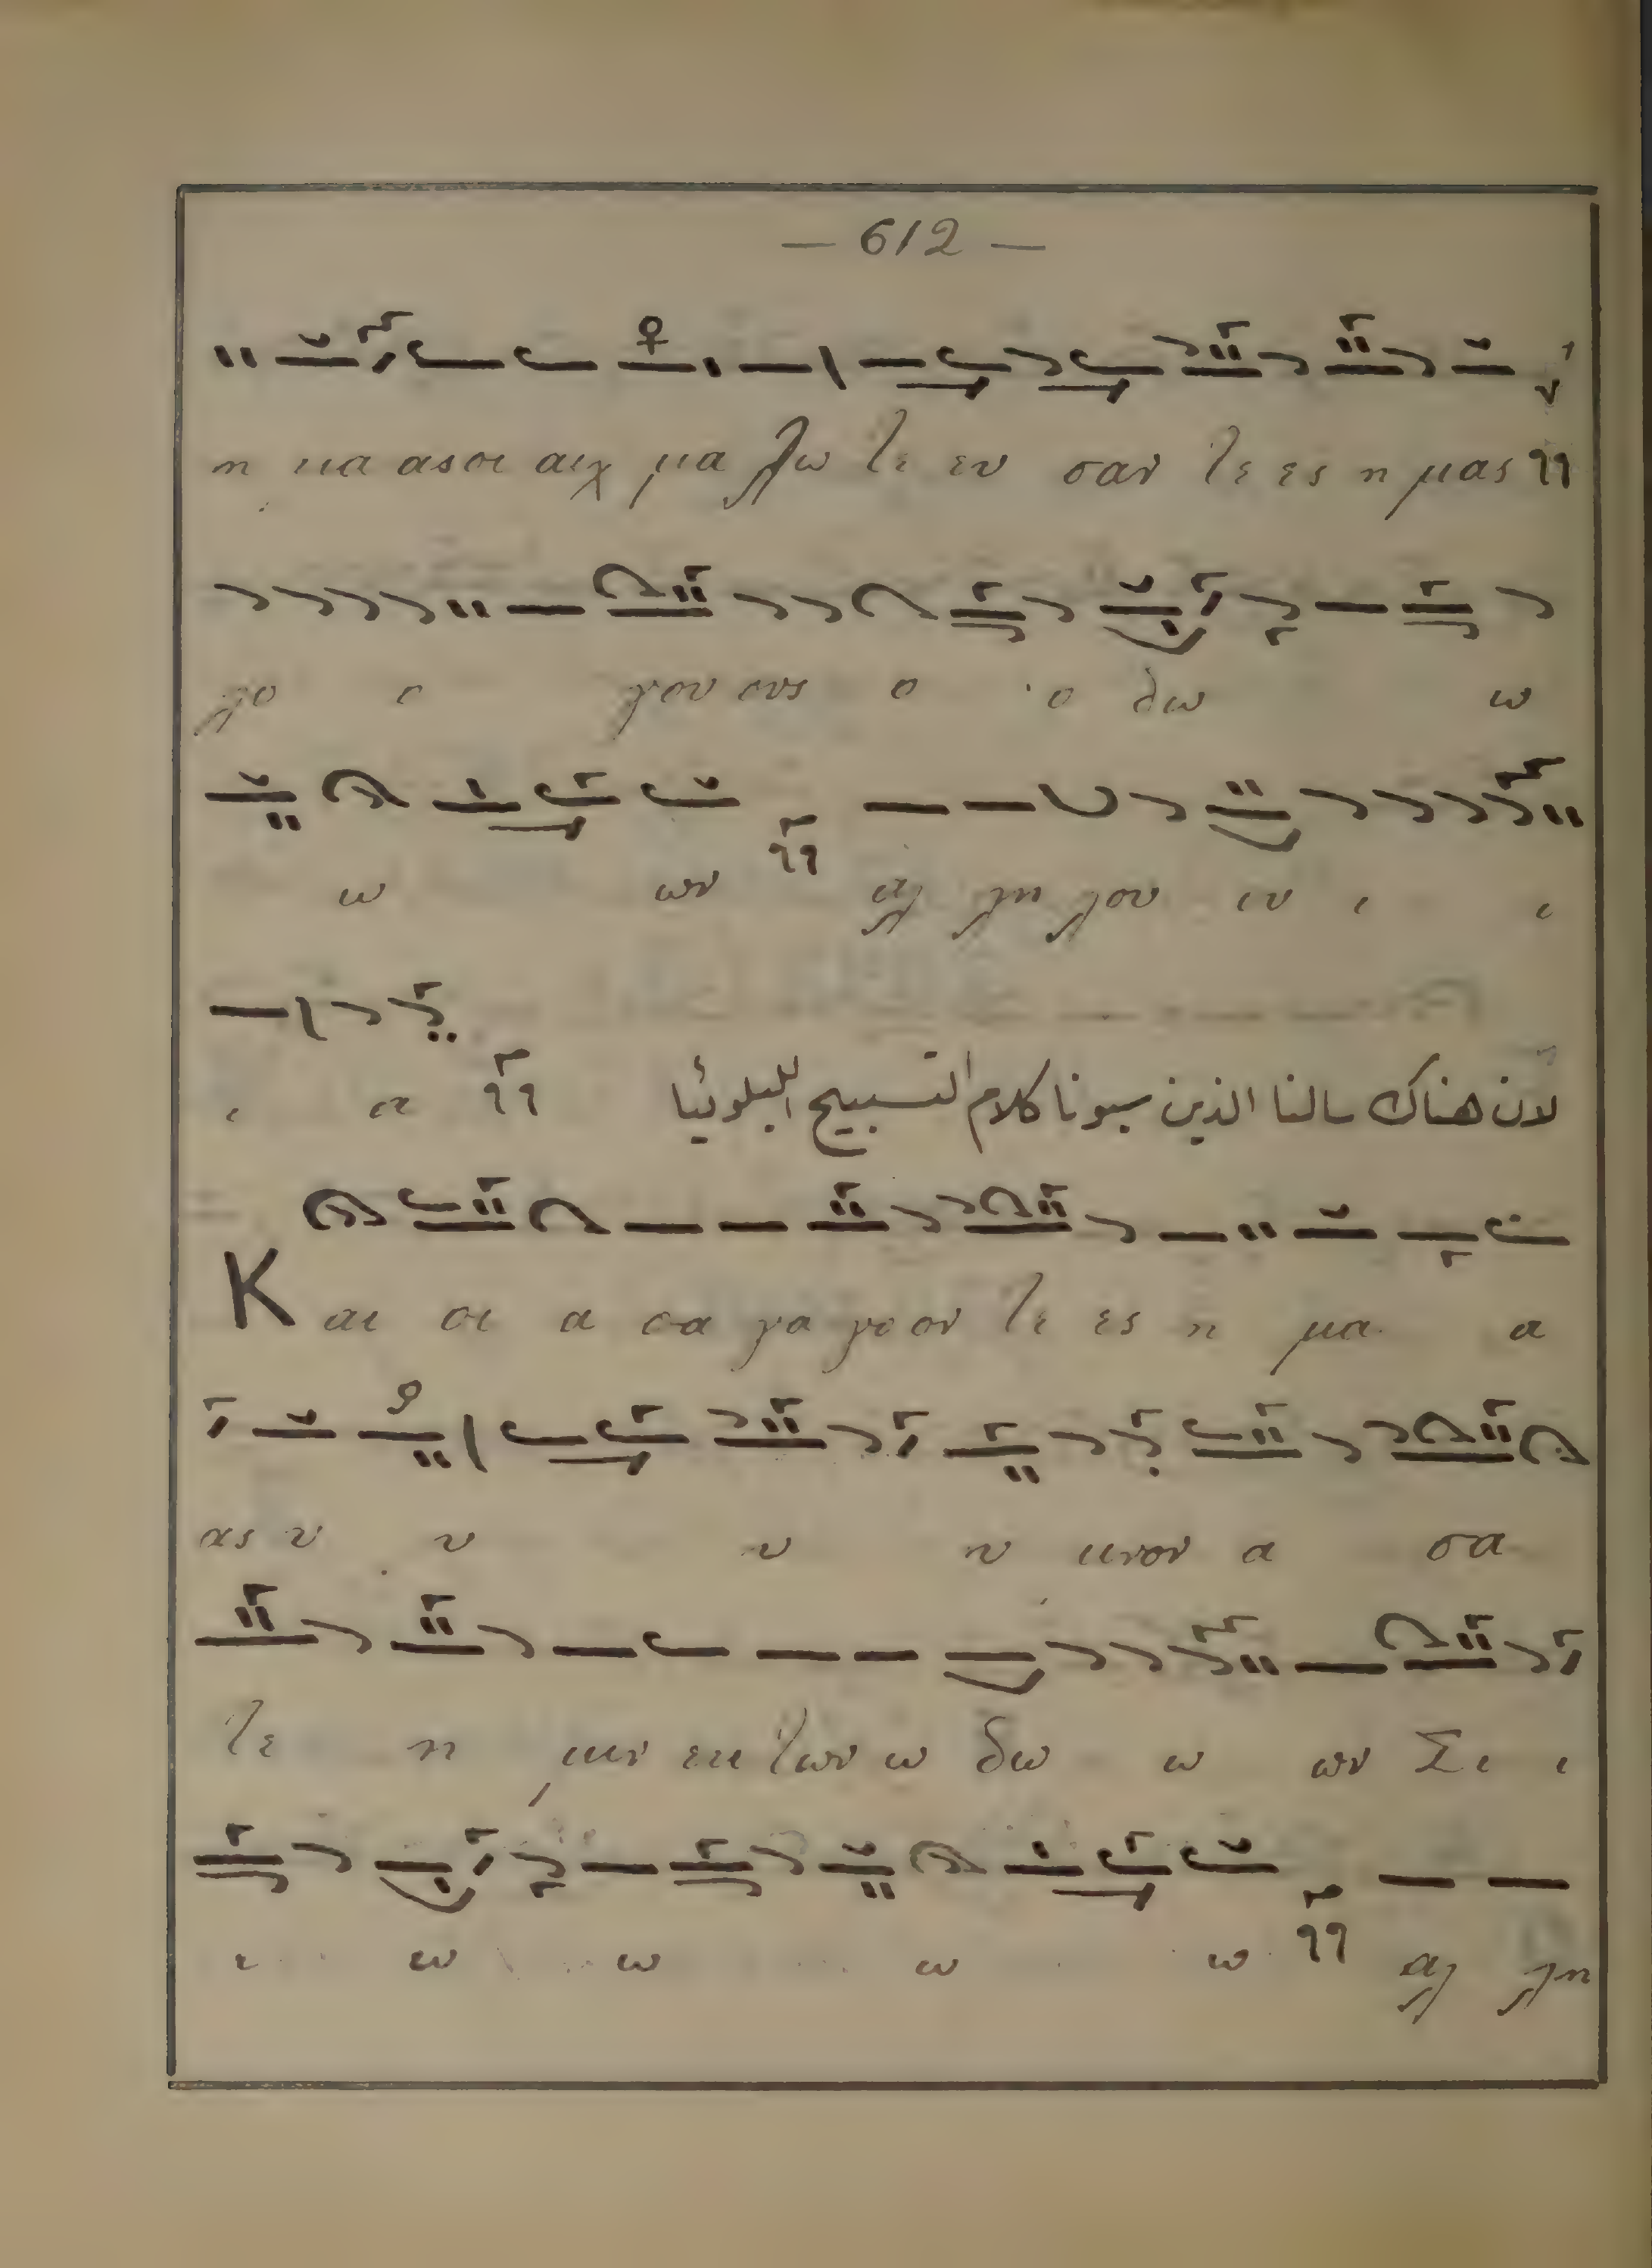 — 612 —
η κα ας οι αιχ μα λω τε ευ σαν τε ες η μας
λο ο γου ους ο ο δω ω
ω ων αλ λη λου ιυ ι ι
ι α لان هناك سالنا الذين سبونا كلام التسبيح الليلوئيا
Και οι α σα γα γο ον τε ες η μα α
ας υ υ υ υ μνον α σα
τε η μιν εκ των ω δω ω ων Σι ι
ι ω ω ω ω αλ λη